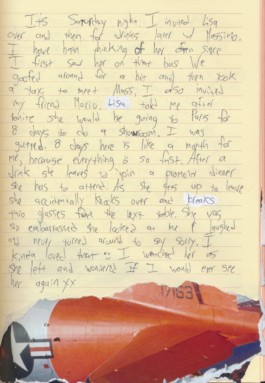 It's Saturday night. I invited Lisa
over and then for drinks later w Massimo.
I have been thinking of her ever since
I first saw her on that bus. We
goofed around for a bit and then took
a taxi to meet Mass. I also invited
my friend Mario. Lisa told me after
tonite she would be going to Paris for
8 days to do a showroom. I was
gutted. 8 days here is like a month for
me, because everything is so fast. After a
drink she leaves to join a promoter dinner
she has to attend. As she gets up to leave
she accidentally knocks over and breaks
two glasses from the next table. She was
so embarrassed she looked at me & laughed
and never turned around to say sorry. I
kinda loved that :: I watched her as
she left and wondered if I would ever see
her again xx